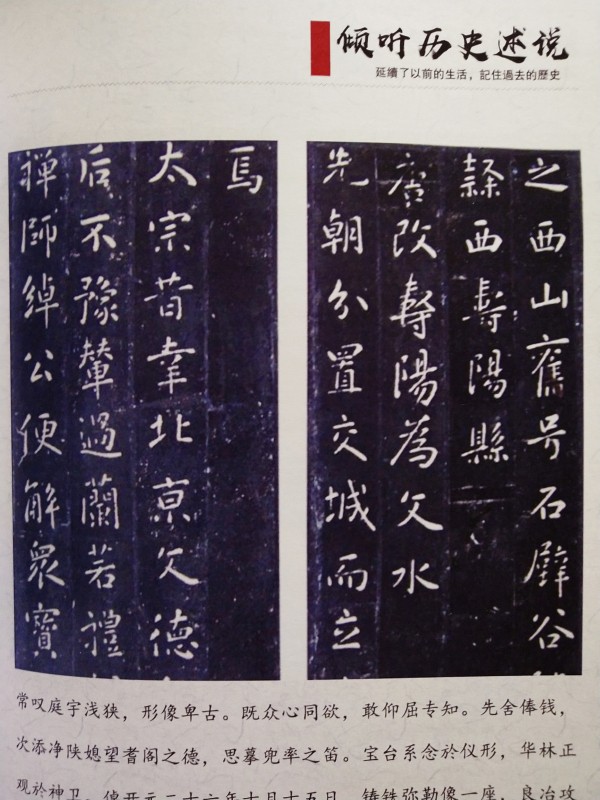 倾听历史述说
延續了以前的生活，記住過去的歷史
之西山舊号石壁谷
隷西壽陽縣
唐改壽陽為文水
先朝分置交城而立
焉
太宗昔幸北京文德
后不豫輦過蘭若禮
禪師綽公便解衆寶
常叹庭宇浅狭，形像卑古。既众心同欲，敢仰屈专知。先舍俸钱，
次添净陕媳望耆阁之德，思摹兜率之笛。宝台系念於仪形，华林正
观於神卫。倬开元二十六年十月十五日，铸铁弥勒像一座，良冶攻